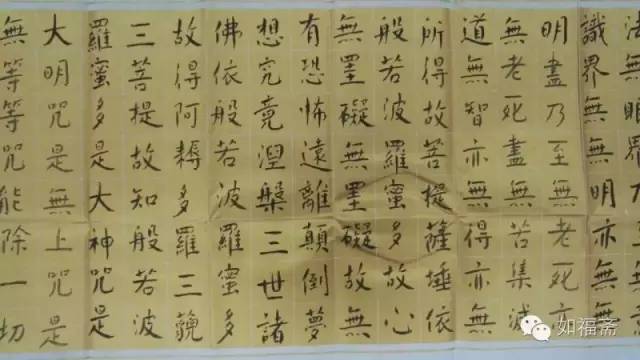 法無眼界乃
識界無無明亦無無
明盡乃至無老死亦
無老死盡無苦集滅
道無智亦無得亦無
所得故菩提薩埵依
般若波羅蜜多故心
無罣礙無罣礙故無
有恐怖遠離顛倒夢
想究竟涅槃三世諸
佛依般若波羅蜜多
故得阿耨多羅三藐
三菩提故知般若波
羅蜜多是大神咒是
大明咒是無上咒是
無等等咒能除一切
如福斋